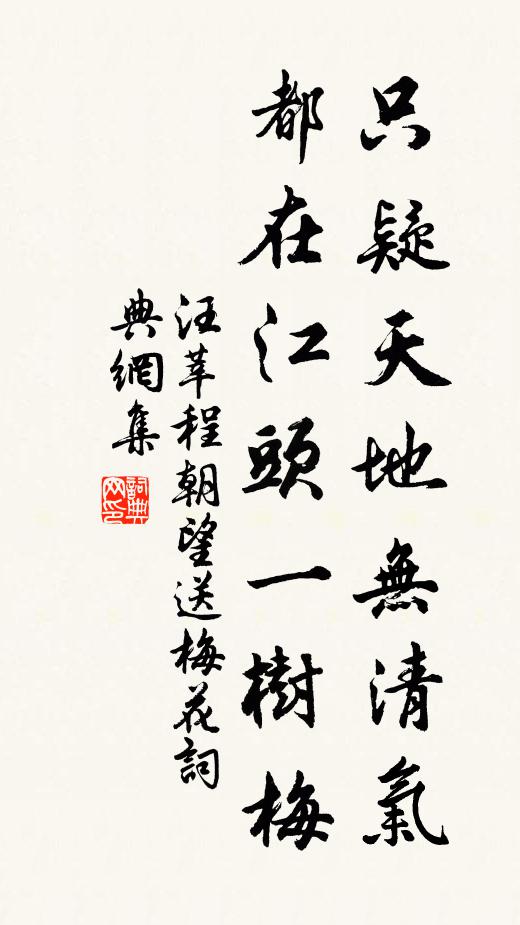 只疑天地無清氣
都在江頭一樹梅
汪莘程朝望送梅花詞
典網集
詞典网印